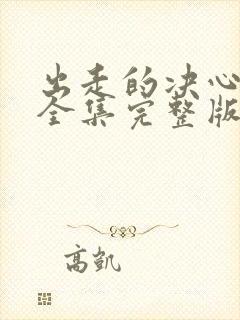 出走的决心
全集完整版
高凯